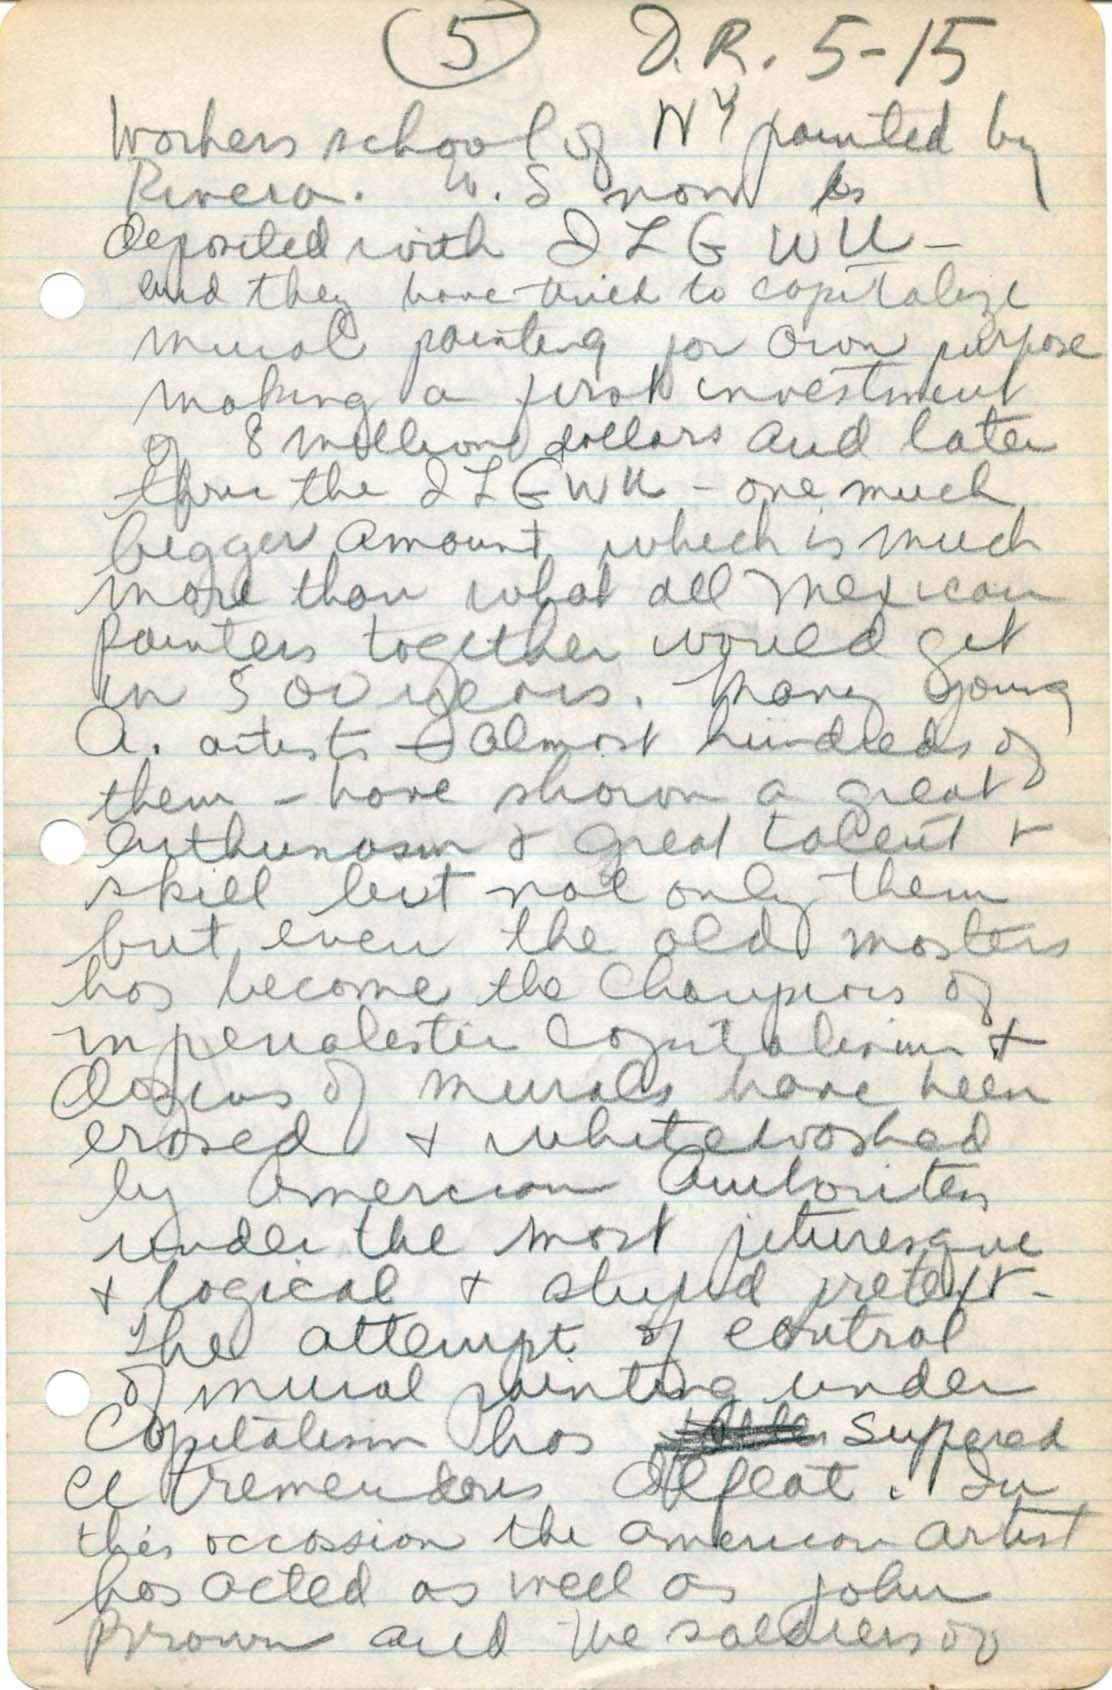 5 D.R. 5-15
Workers school of NY painted by
Rivera. W. S now is
deposited with ILGWU -
and they have tried to capitalize
mural painting for own purpose
making a first investment
of 8 million dollars and later
thru the ILGWU - one much
bigger amount which is much
more than what all Mexican
painters together would get
in 500 years. Many young
A. artists - almost hundreds of
them - have shown a great
enthunasm & great talent &
skill but not only them
but even the old masters
has become the champions of
imperialistic capitalism &
dozens of murals have been
erased & whitewashed
by Amercian Authorities
under the most picturesque
& logical & stupid pretext -
The attempt of control
of mural painting under
Capitalism has suffered
a tremendous defeat. In
this occassion the american artist
has acted as well as John
Brown and the soldiers of